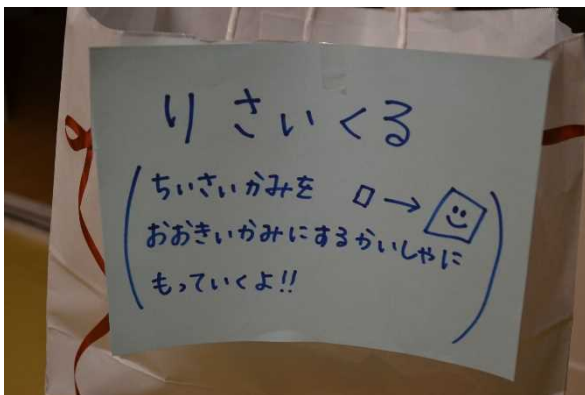 りさいくる
(ちいさいかみを □→◇
おおきいかみにするかいしゃに
もっていくよ!!)